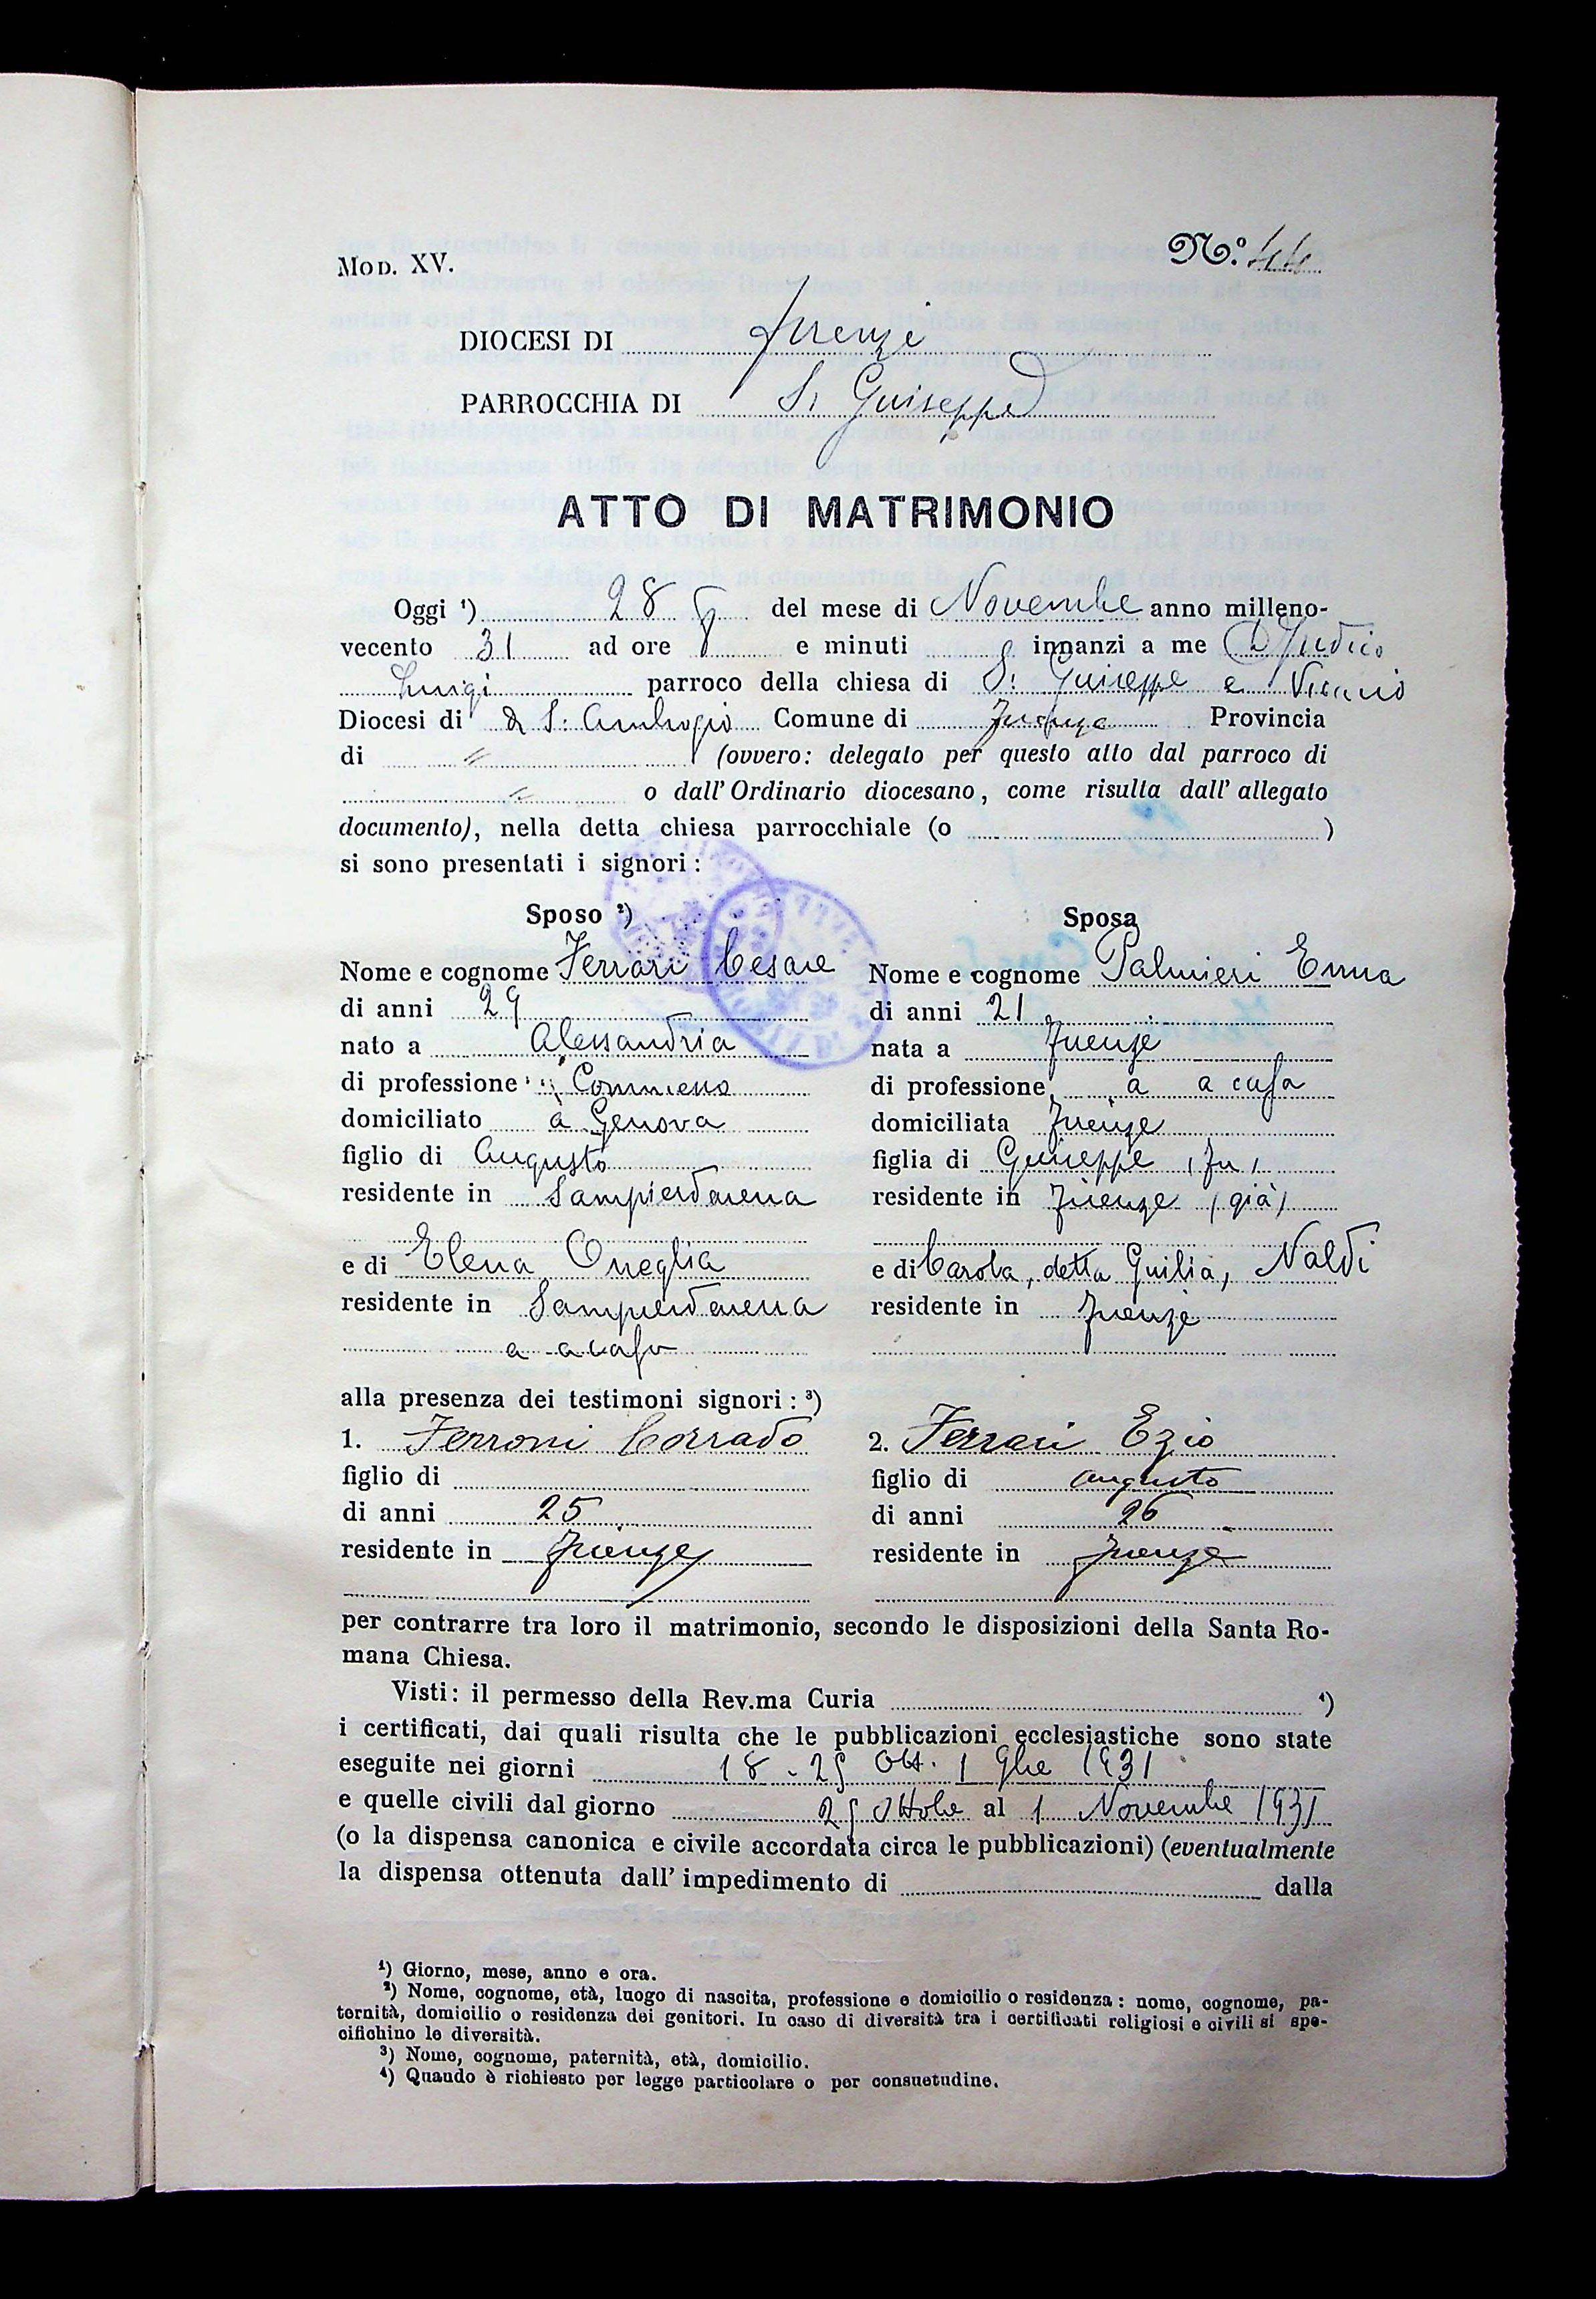 Mod. XV.
N.º 44
DIOCESI DI Firenze
PARROCCHIA DI S. Giuseppe
ATTO DI MATRIMONIO
Oggi ¹) 28 del mese di Novembre anno milleno-
vecento 31 ad ore 8 e minuti innanzi a me
Luigi parroco della chiesa di S. Giuseppe e Vicario
Diocesi di di S. Ambrogio Comune di Firenze Provincia
di " (ovvero: delegato per questo atto dal parroco di
" o dall' Ordinario diocesano, come risulta dall' allegato
documento), nella detta chiesa parrocchiale (o )
si sono presentati i signori :
Sposo ²)
Nome e cognome Ferrari Cesare
di anni 29
nato a Alessandria
di professione Commesso
domiciliato a Genova
figlio di Augusto
residente in Sampierdarena
e di Elena Oneglia
residente in Sampierdarena
a a casa
Sposa
Nome e cognome Palmieri Emma
di anni 21
nata a Firenze
di professione a a casa
domiciliata Firenze
figlia di Giuseppe (fu)
residente in Firenze (già)
e di Carola, detta Giulia, Naldi
residente in Firenze
alla presenza dei testimoni signori : ³)
1. Ferroni Corrado
figlio di
di anni 25
residente in Firenze
2. Ferrari Ezio
figlio di Augusto
di anni 26
residente in Firenze
per contrarre tra loro il matrimonio, secondo le disposizioni della Santa Ro-
mana Chiesa.
Visti : il permesso della Rev.ma Curia ⁴)
i certificati, dai quali risulta che le pubblicazioni ecclesiastiche sono state
eseguite nei giorni 18 - 25 Ott. 1 9bre 1931
e quelle civili dal giorno 25 Ottobre al 1 Novembre 1931
(o la dispensa canonica e civile accordata circa le pubblicazioni) (eventualmente
la dispensa ottenuta dall' impedimento di dalla
¹) Giorno, mese, anno e ora.
²) Nome, cognome, età, luogo di nascita, professione e domicilio o residenza : nome, cognome, pa-
ternità, domicilio o residenza dei genitori. In caso di diversità tra i certificati religiosi e civili si spe-
cifichino le diversità.
³) Nome, cognome, paternità, età, domicilio.
⁴) Quando è richiesto per legge particolare o per consuetudine.